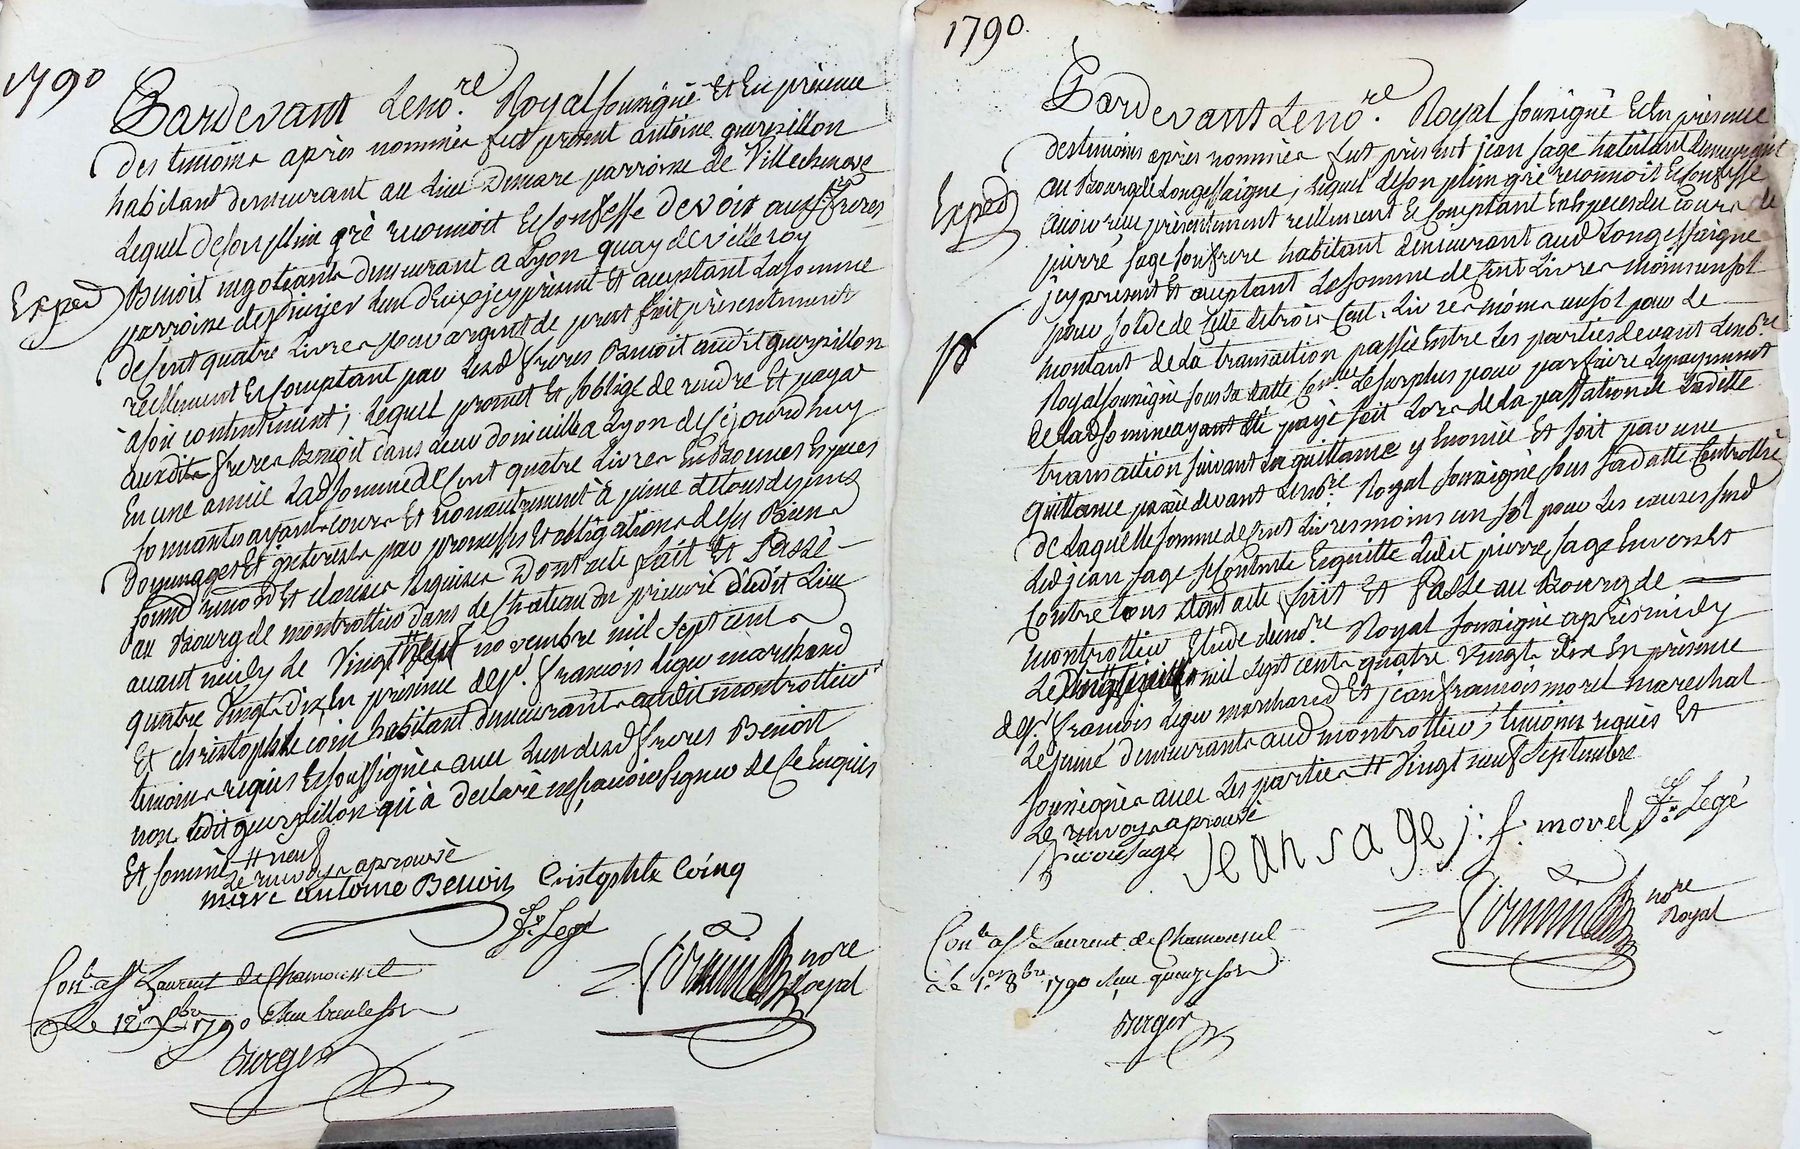 1790
Pardevant Le no.re Royal soussigné Et En présence
des temoins après nommés fut présent antoine guerpillon
habitant demeurant au Lieu Demare parroisse de Villechenève
Lequel de son plein gré reconnoit Et Confesse devoir aux Srs freres
Benoit negotiants demeurant a Lyon quay de Villeroy
Exped
parroisse de L'un D'eux jcy présent Et acceptant La somme
de Cent quatre Livres pour argent de prest fait présentement
reellement Et Comptant par Lesd freres Benoit audit guerpillon
à son contentement, Lequel promet Et s'oblige de rendre Et payer
auxdits freres Benoit dans Leur domicille a Lyon de Cejourd'huy
En une année Lad somme de Cent quatre Livres En Bonnes Especes
sonnantes ayant cours Et non autrement à peine de tous depens
Dommages Et interests par promesses Et obligations de ses Biens
soumd renond Et clauses requises Dont acte fait Et Passé
au Bourg de montrottier dans Le Chateau du prieuré dudit Lieu
avant midy Le Vingt # novembre mil sept cent
quatre Vingt Dix En présence de Sr. françois Legé marchand
Et christophle coinc habitant demeurants audit montrottier
temoins requis Et soussignés avec L'un desd freres Benoit
non Ledit guerpillon qui à declaré ne sçavoir signer de Ce Enquis
Et sommé # neuf
Le renvoy aprouvé
marc antoine Benoit Cristophle Coinq
fr. Legé
no.re
Royal
Con.lé a St Laurent de Chamousset
Le 12 Xbre 1790
Berger
1790.
Pardevant Le no.re Royal soussigné Et En présence
des temoins après nommés fut présent jean sage habitant demeurant
au Bourg de Longessaigne, Lequel de son plein gré reconnoit Et Confesse
Exped
avoir reçu présentement reellement Et Comptant En Especes du Cours de
pierre sage son frere habitant demeurant aud Longessaigne
jcy présent Et acceptant La somme de Cent Livres moins un sol
pour solde de Celle de trois Cent Livres moins un sol pour Le
montant de La transaction passée Entre Les parties devant Le no.re
Royal soussigné sous sa datte Con.lée Le surplus pour parfaire Le payement
de Lad somme ayant été payé soit Lors de La passation de Ladite
transaction suivant La quittance y Enoncée Et soit par une
quittance passée devant Le no.re Royal soussigné sous sa datte Controllée
de Laquelle somme de Cent Livres moins un sol pour Les causes susd
Led jean sage se Contente Et quitte Ledit pierre sage Envers Et
Contre tous dont acte fait Et Passé au Bourg de
montrottier Etude du no.re Royal soussigné après midy
Le # mil sept cent quatre Vingt dix En présence
de Sr. françois Legé marchand Et jean françois morel marechal
Le jeune demeurants aud montrottier, temoins requis Et
soussignés avec Les parties # Vingt neuf septembre
Le renvoy aprouvé
jean sage j. f. morel fr. Legé
no.re
Royal
Con.lé a St Laurent de Chamousset
Le 1.er 8.bre 1790 Reçu quinze sols
Berger